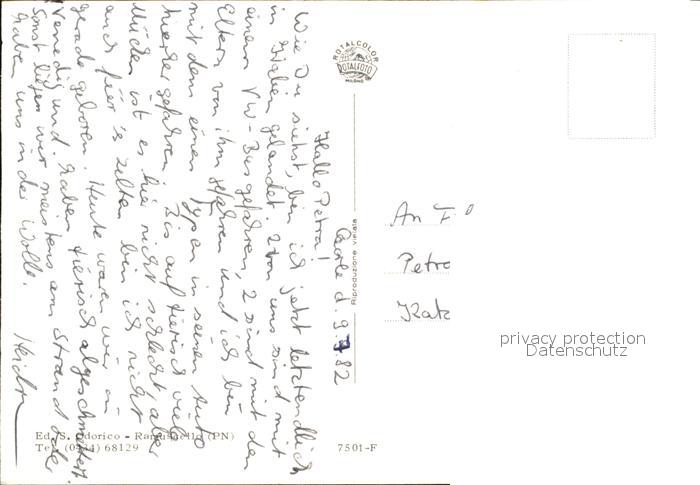 Caorle d. 9.7.82
Hallo Petra!
Wie Du siehst, bin ich jetzt letztendlich
in Italien gelandet. 2 von uns sind mit
einem VW-Bus gefahren, 2 sind mit den
Eltern von ihm gefahren und ich bin
mit dem einen Typen in seinem Auto
hierher gefahren. Bis auf tierisch viele
Mücken ist es hier nicht schlecht aber
auch hier zelten bin ich nicht
gerade geboren. Heute waren wir in
Venedig und haben tierisch abgeschmettert.
Sonst liegen wir meistens am Strand oder
haben uns in der Wolle.
An F
Petra
Katz
ROTALCOLOR
ROTALFOTO
MILANO
Riproduzione vietata
Ed. S. Odorico - (PN)
Tel. 68129
7501-F
privacy protection
Datenschutz